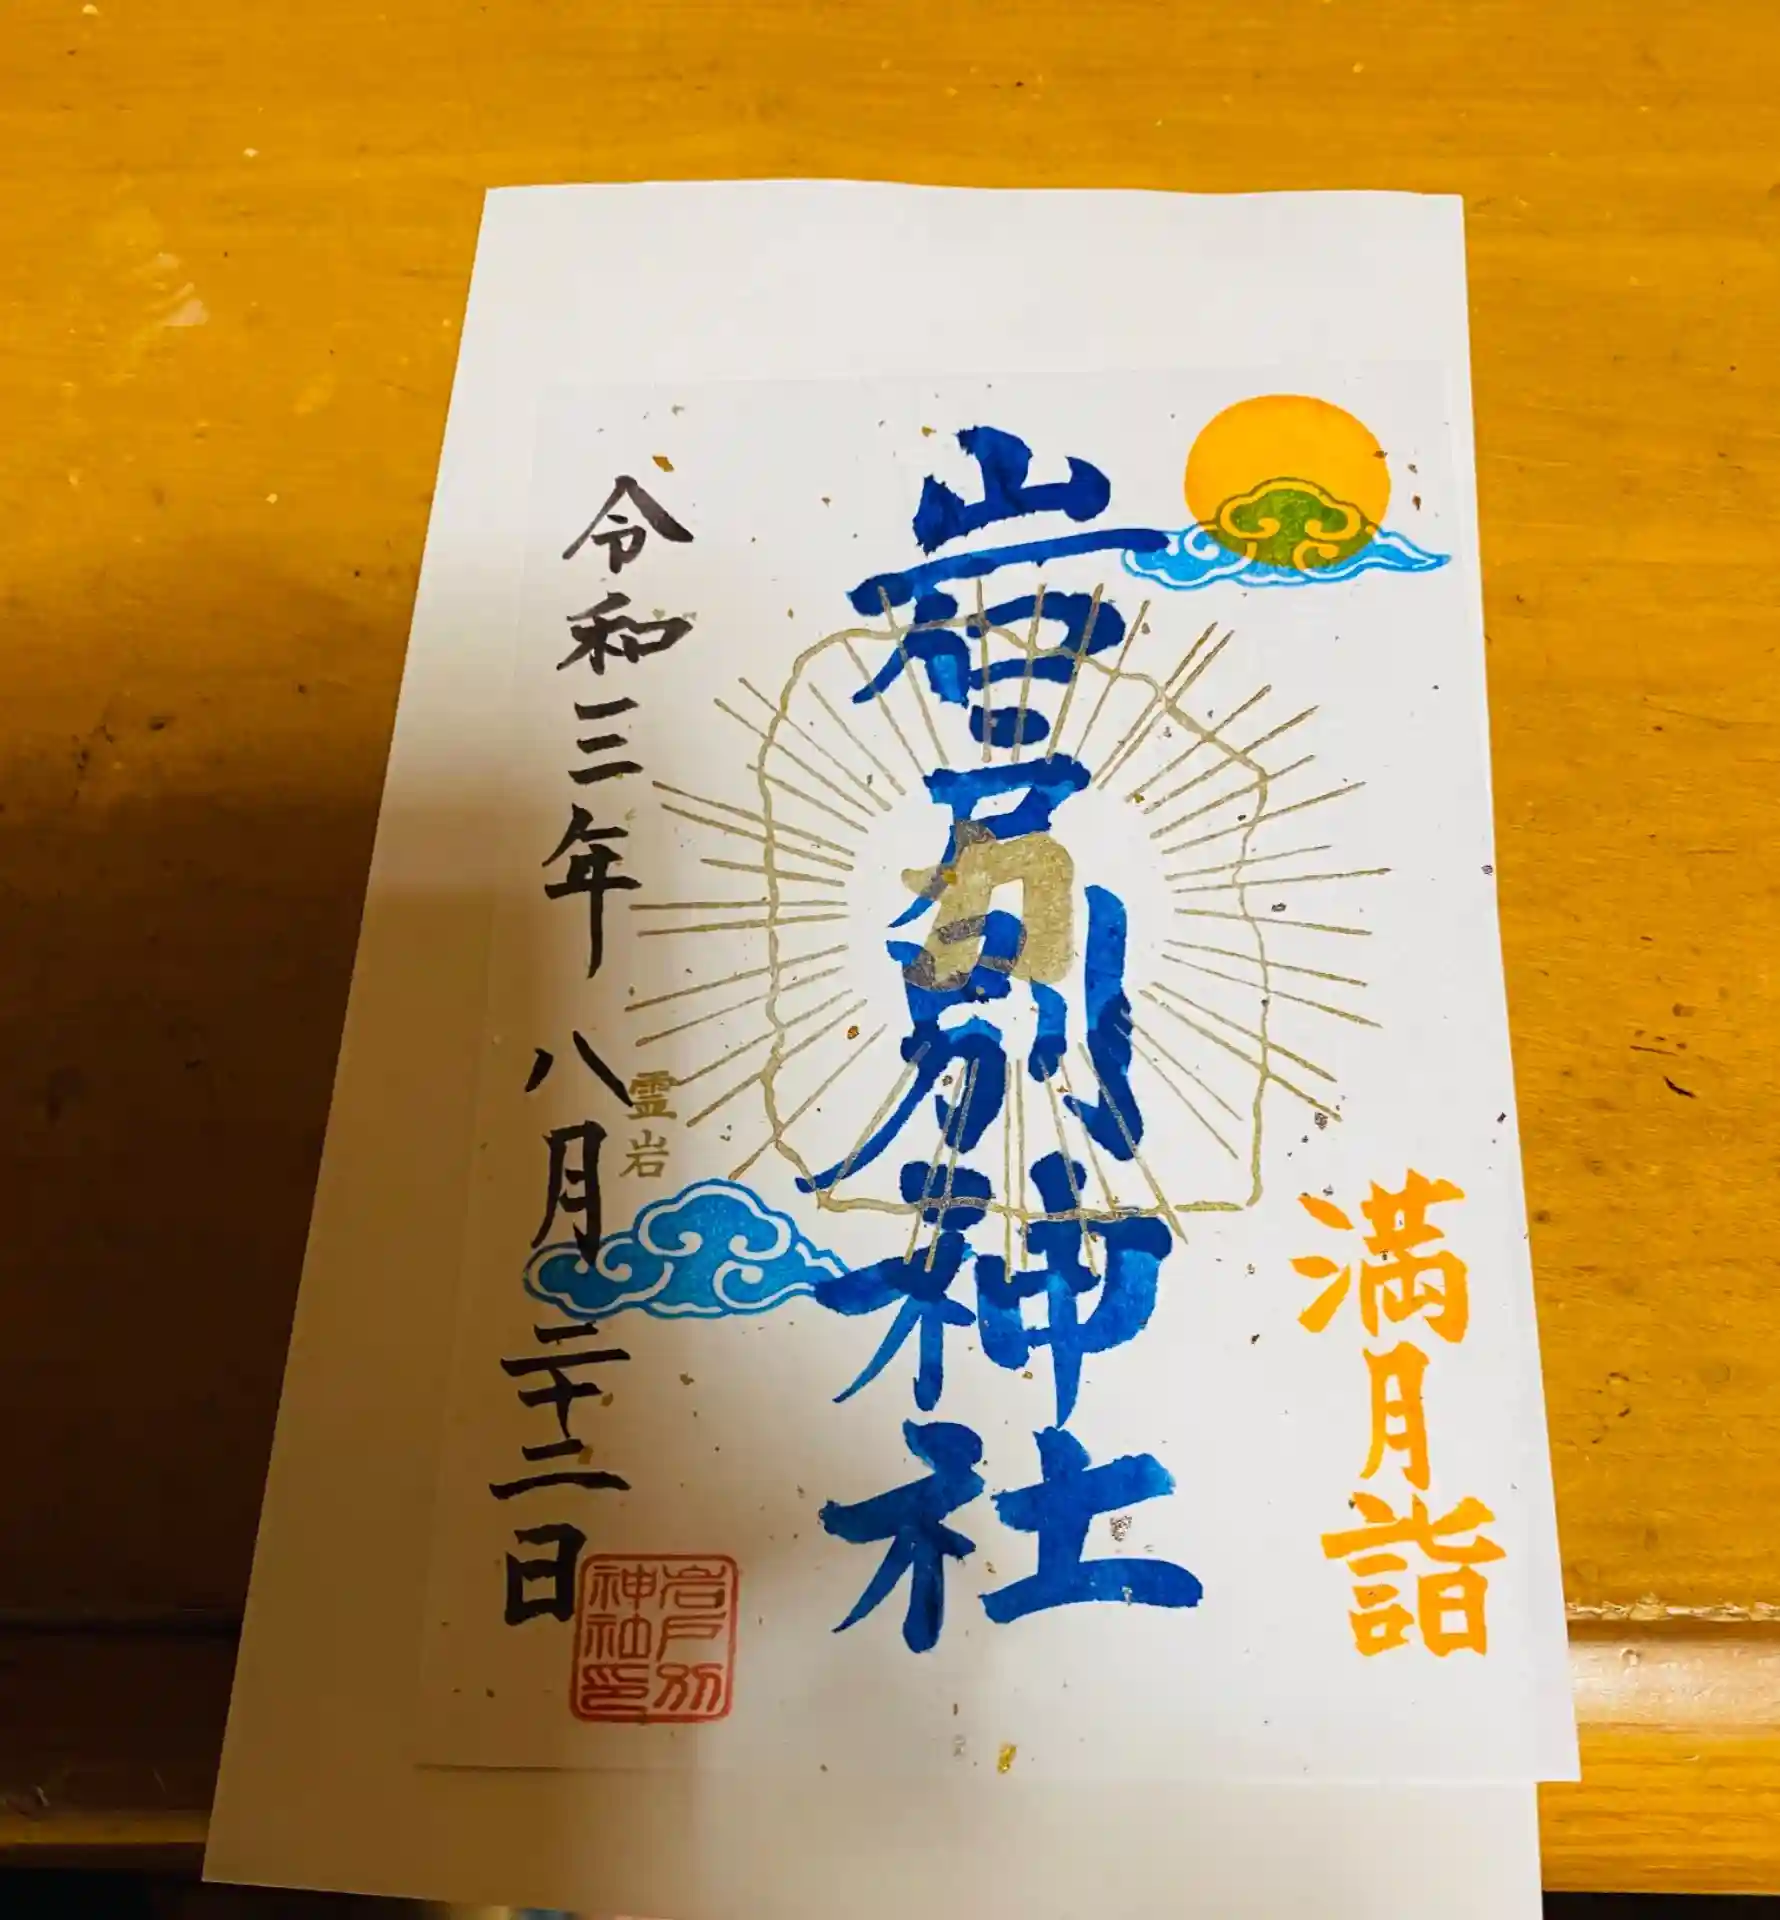 満月詣
岩戸別神社
霊岩
令和三年 八月 二十二日
岩戸別
神社印